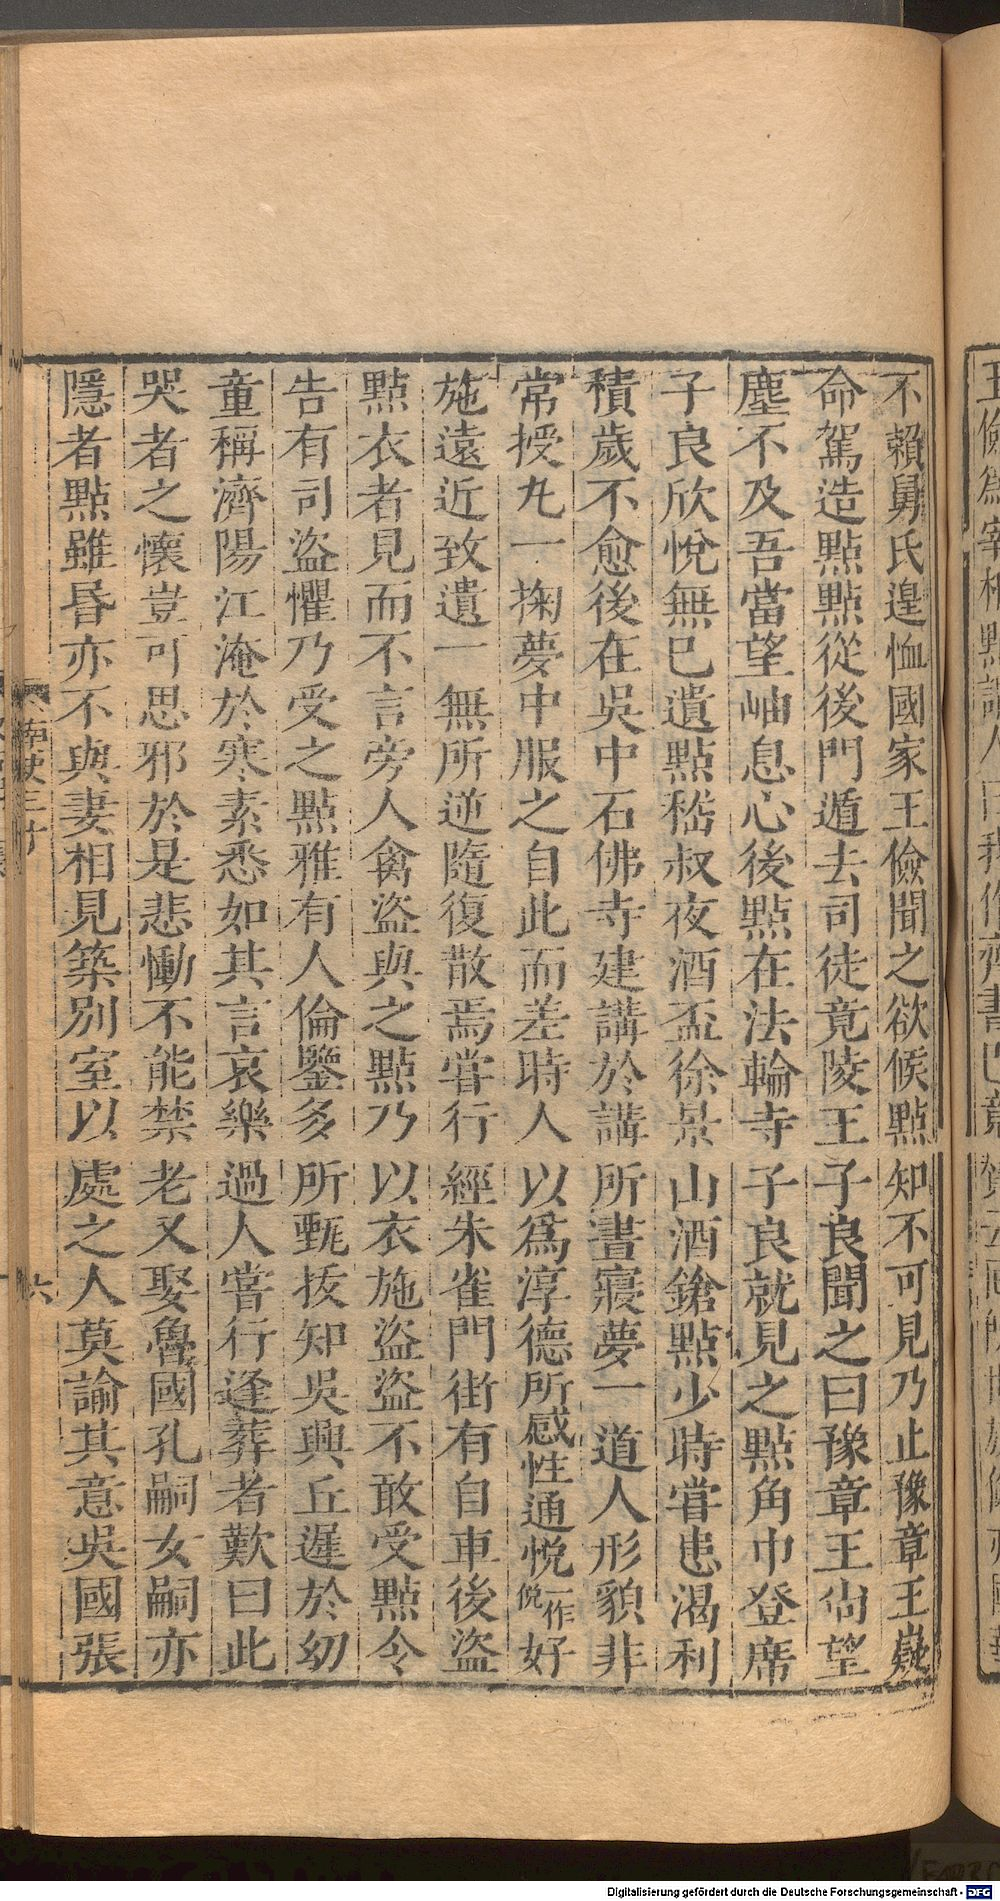 不賴舅氏遑恤國家王儉聞之欲候點知不可見乃止豫章王嶷
命駕造點點從後門遁去司徒竟陵王子良聞之曰豫章王尙望
塵不及吾當望岫息心後點在法輪寺子良就見之點角巾登席
子良欣悅無已遺點嵇叔夜酒盃徐景山酒鎗點少時嘗患渴利
積歲不愈後在吳中石佛寺建講於講所晝寢夢一道人形貌非
常授丸一掬夢中服之自此而差時人以爲淳德所感性通悅一作倪好
施遠近致遺一無所逆隨復散焉嘗行經朱雀門街有自車後盜
點衣者見而不言旁人禽盜與之點乃以衣施盜盜不敢受點令
告有司盜懼乃受之點雅有人倫鑒多所甄拔知吳興丘遲於幼
童稱濟陽江淹於寒素悉如其言哀樂過人嘗行逢葬者歎曰此
哭者之懷豈可思邪於是悲慟不能禁老又娶魯國孔嗣女嗣亦
隱者點雖昏亦不與妻相見築別室以處之人莫諭其意吳國張
南史三十
六
Digitalisierung gefördert durch die Deutsche Forschungsgemeinschaft - DFG